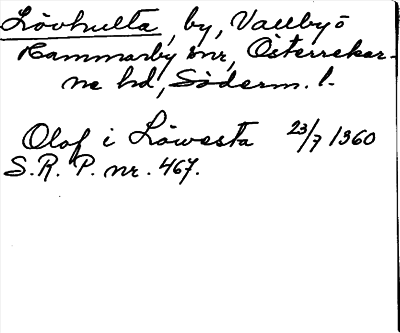 Lövhulta, by, Vallby ö
Hammarby snr, Österrekar-
ne hd, Söderm. l.
Olof i Löwesta 23/7 1360
S.R.P. nr. 467.